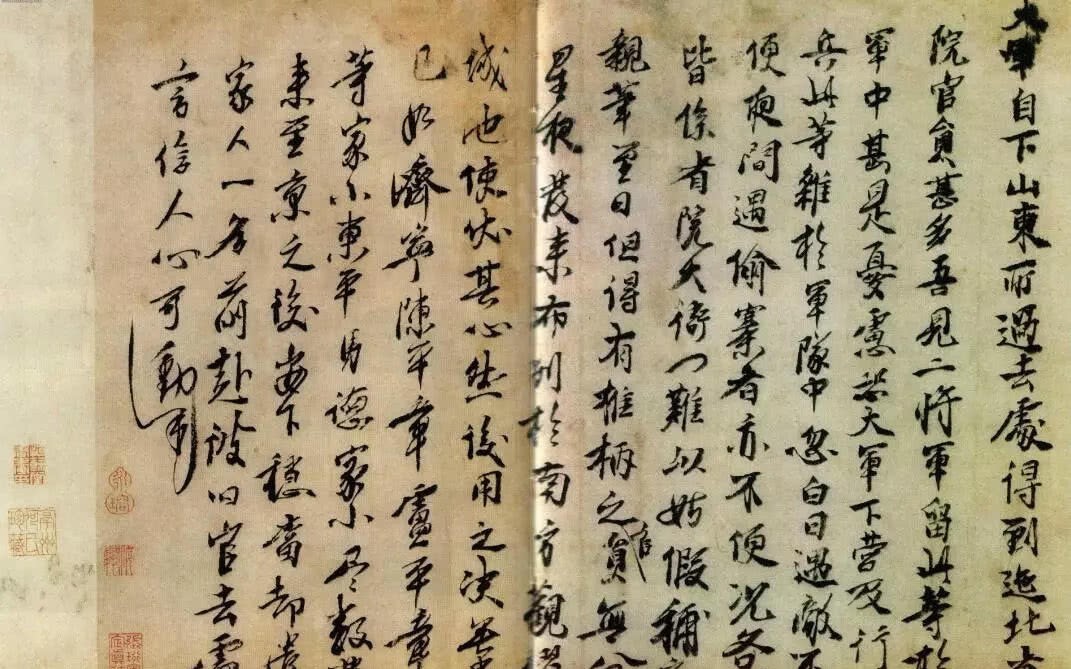 大軍自下山東所過去處得到迤北
院官員甚多吾見二将軍留此等於
軍中甚是憂慮恐大軍下營及行
兵此等雜於軍隊中忽白日遇敵不
便夜間遇偷寨者亦不便况各
皆係省院大衙门難以姑假補
親筆至日但得有椎柄之官員無分
星夜發来布列於南方觀
城池使伏其心然後用之决無
已如濟寧陳平章盧平章
等家小東平馬德家小尽数發
来至京之後安下穏當却遣
家人一名前赴彼旧官去處
言信人心可動